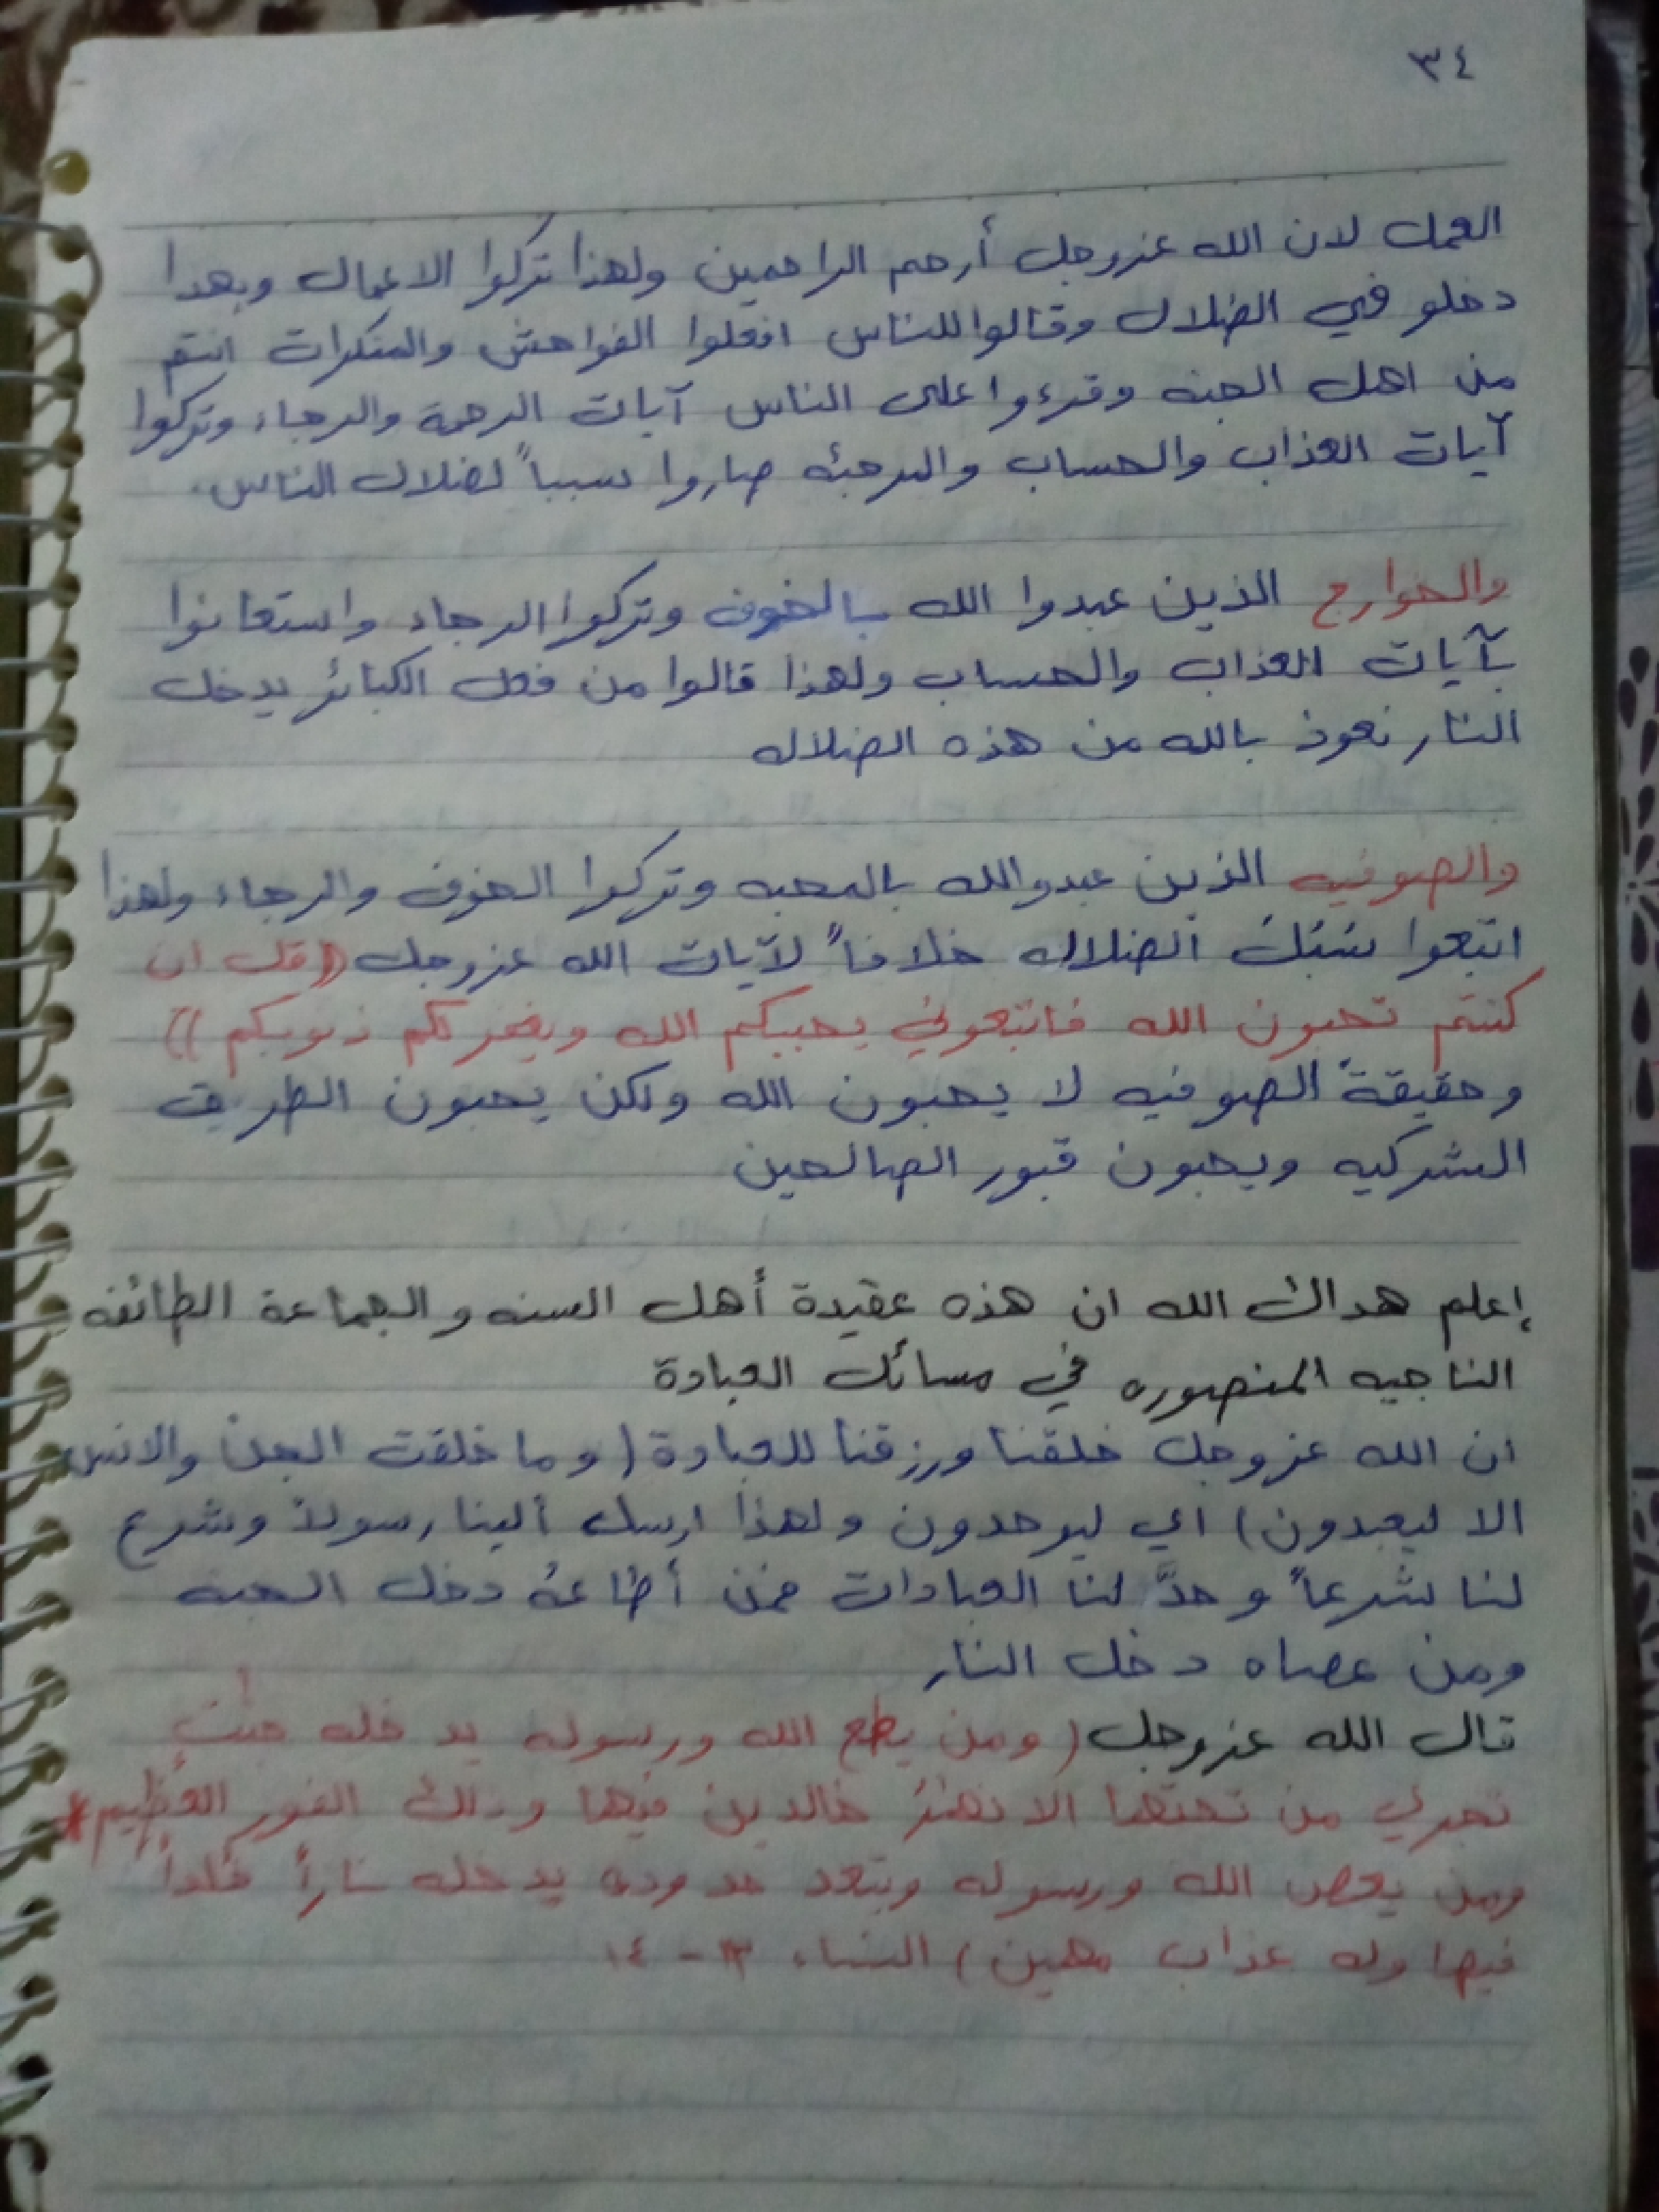 ٣٤
العمل لان الله عزوجل أرحم الراحمين ولهذا تركوا الاعمال وبهذا
دخلو في الضلال وقالوا للناس افعلوا الفواحش والمنكرات انتم
من اهل الجنه وقرءوا على الناس آيات الرحمة والرجاء وتركوا
آيات العذاب والحساب والمرجئه صاروا سبباً لضلال الناس.
والخوارج الذين عبدوا الله بالخوف وتركوا الرجاء واستعانوا
بآيات العذاب والحساب ولهذا قالوا من فعل الكبائر يدخل
النار نعوذ بالله من هذه الضلاله
والصوفيه الذين عبدو الله بالمحبه وتركوا الخوف والرجاء ولهذا
اتبعوا سُبُل الضلاله خلافاً لآيات الله عزوجل ((قل ان
كنتم تحبون الله فاتبعوني يحببكم الله ويغفر لكم ذنوبكم))
وحقيقة الصوفيه لا يحبون الله ولكن يحبون الطريق
الشركيه ويحبون قبور الصالحين
إعلم هداك الله ان هذه عقيدة أهل السنه والجماعة الطائفه
الناجيه المنصوره في مسائل العبادة
ان الله عزوجل خلقنا ورزقنا للعبادة (وما خلقت الجن والانس
الا ليعبدون) اي ليوحدون ولهذا ارسل ألينا رسولاً وشرع
لنا شرعاً وحدَّ لنا العبادات فمن أطاعهُ دخل الجنه
ومن عصاه دخل النار
قال الله عزوجل (ومن يطع الله ورسوله يدخله جنٰتٍ
تجري من تحتها الانهٰرُ خالدين فيها وذلك الفوز العظيم*
ومن يعص الله ورسوله ويتعد حدوده يدخله ناراً خٰلداً
فيها وله عذاب مهين) النساء ١٣ - ١٤